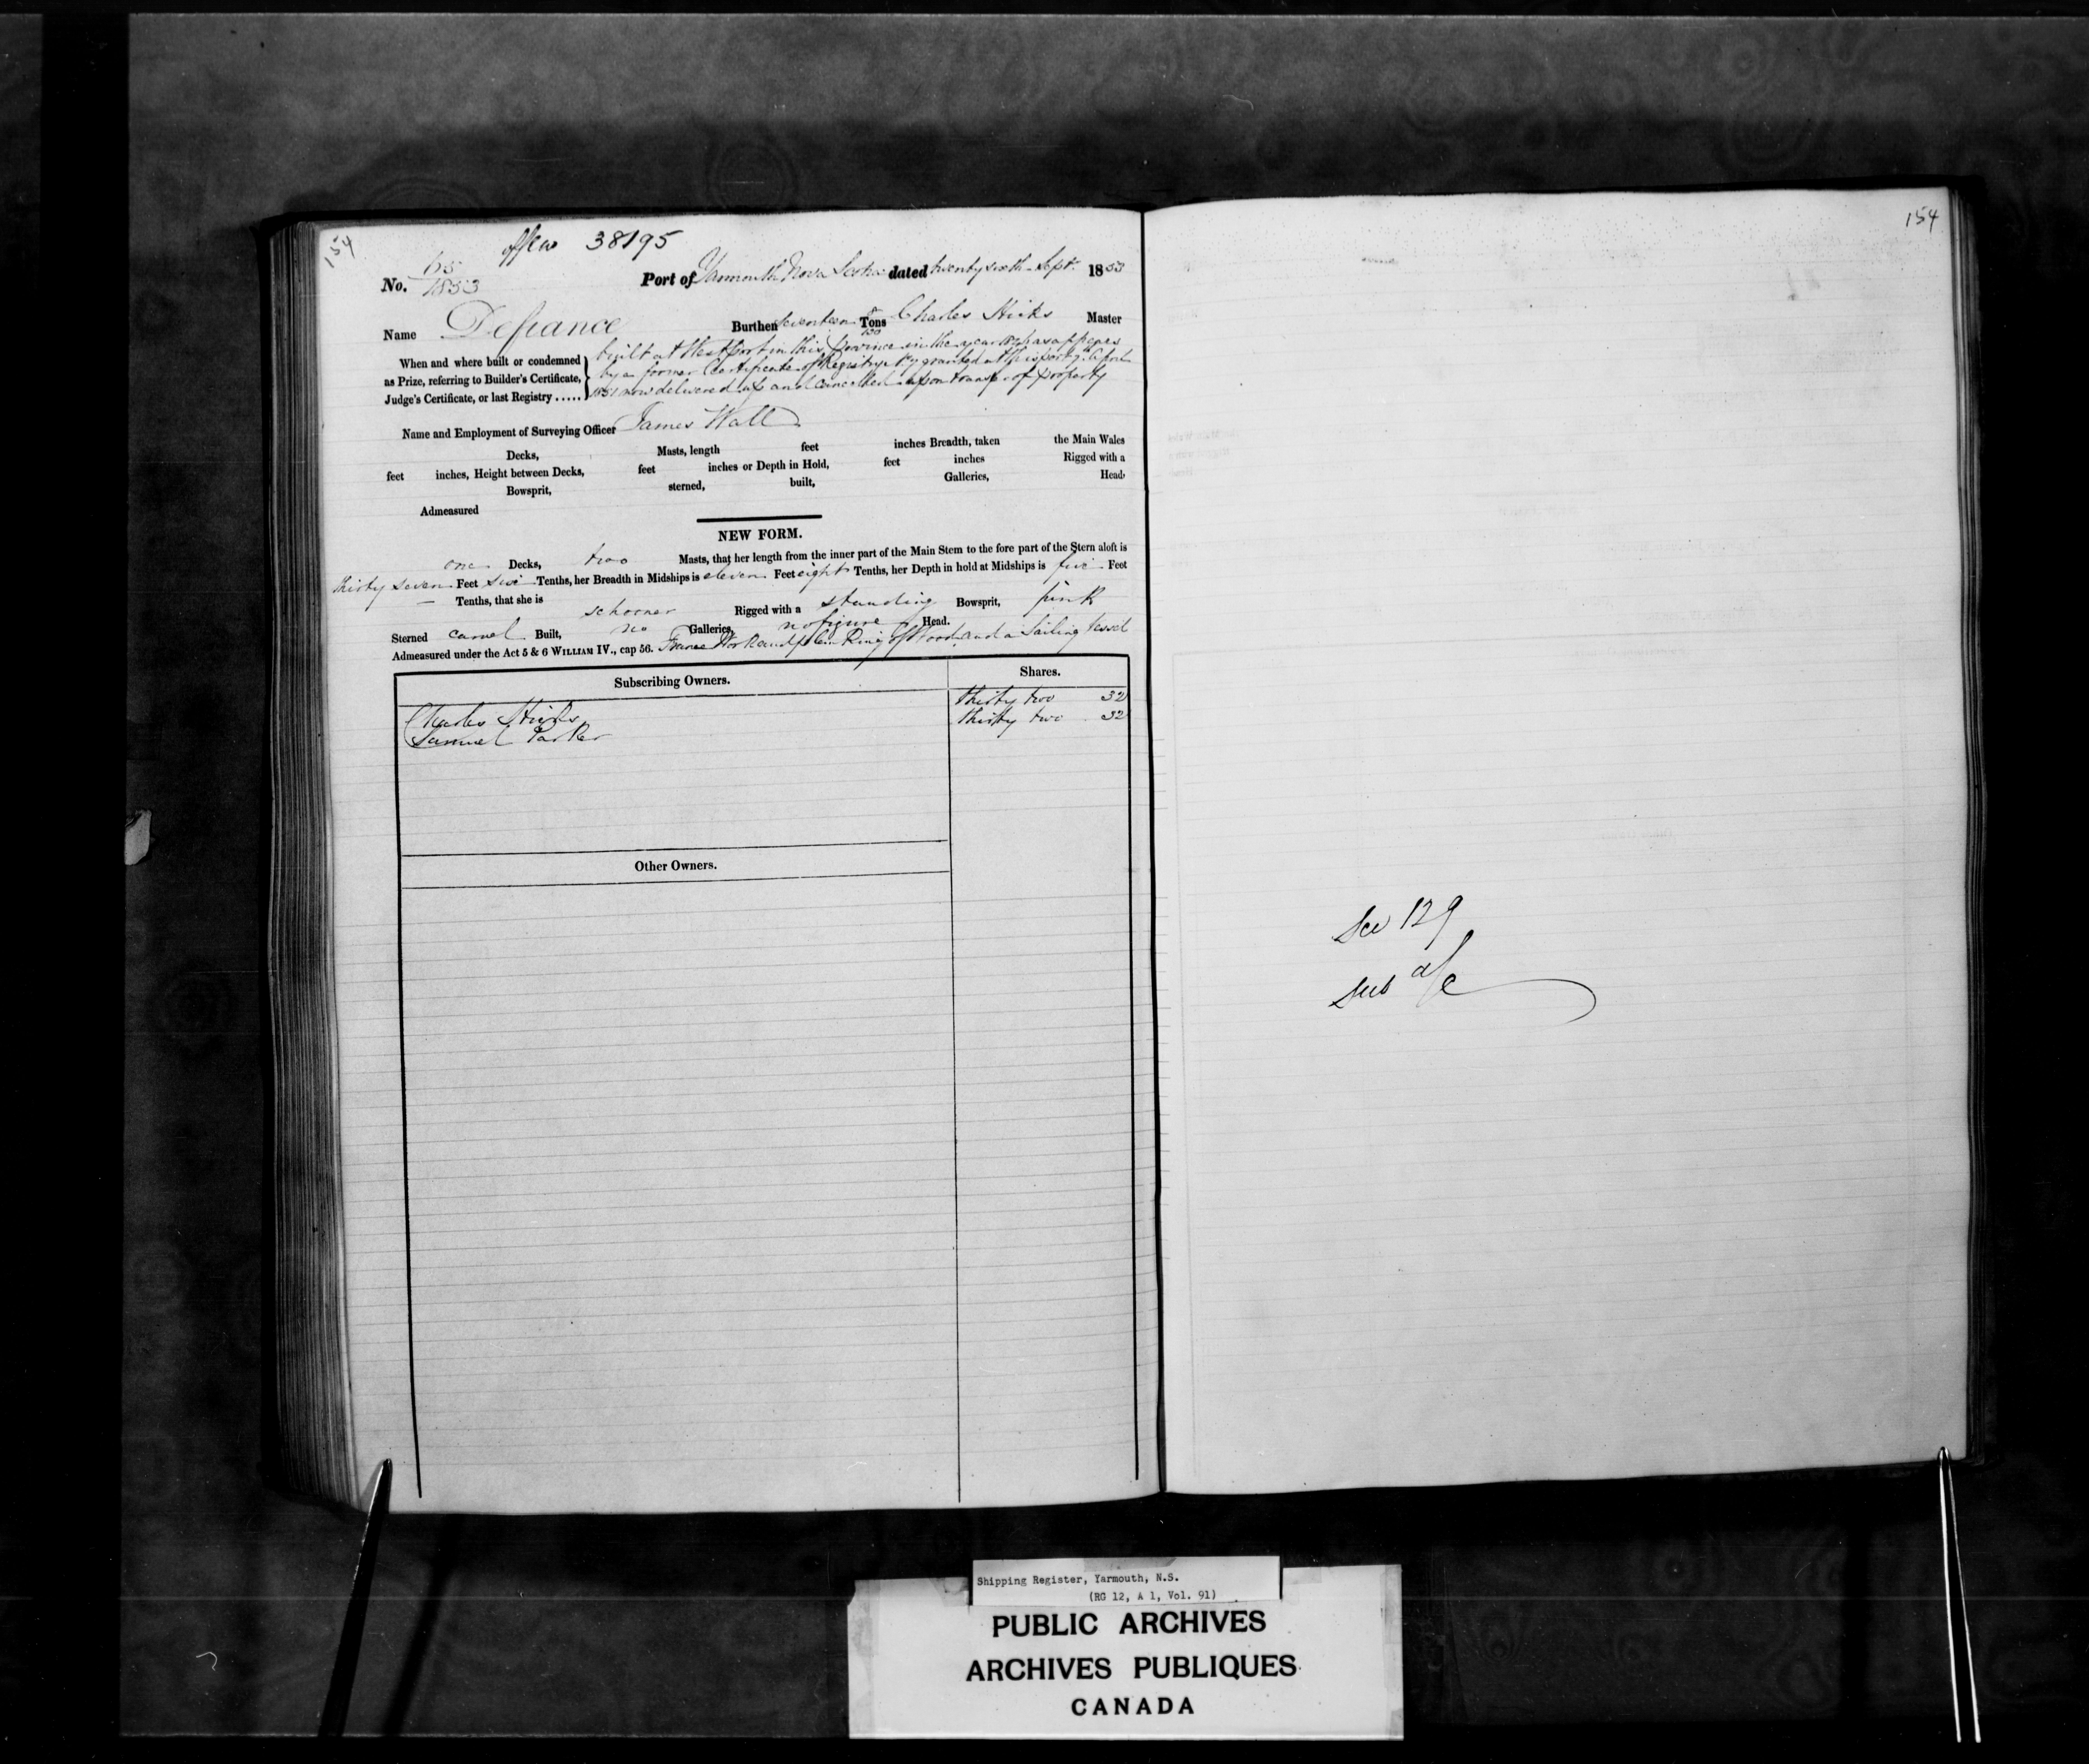 154
38195
No. 65 1853
Port of Yarmouth Nova Scotia dated twenty sixth Sept. 1853
Name Defiance Burthen seventeen Tons Charles Hicks Master
When and where built or condemned
as Prize, referring to Builder's Certificate,
Judge's Certificate, or last Registry .....
built at Westport in this Province in the year as appears
by a former Certificate of Registry granted at this port April
1851 now delivered up and cancelled upon transfer of property
Name and Employment of Surveying Officer James Wall
Decks, Masts, length feet inches Breadth, taken the Main Wales
feet inches, Height between Decks, feet inches or Depth in Hold, feet inches Rigged with a
Bowsprit, sterned, built, Galleries, Head
Admeasured
NEW FORM.
one Decks, two Masts, that her length from the inner part of the Main Stem to the fore part of the Stern aloft is
thirty seven Feet six Tenths, her Breadth in Midships is eleven Feet eight Tenths, her Depth in hold at Midships is five Feet
— Tenths, that she is schooner Rigged with a standing Bowsprit, pink
Sterned carvel Built, no Galleries, no figure Head.
Admeasured under the Act 5 & 6 WILLIAM IV., cap 56. Frame Work and planking of Wood and a Sailing Vessel
Subscribing Owners. Shares.
Charles Hicks thirty two 32
Samuel Parker thirty two 32
Other Owners.
154
See 129
Sub a/c
Shipping Register, Yarmouth, N.S.
(RG 12, A 1, Vol. 91)
PUBLIC ARCHIVES
ARCHIVES PUBLIQUES
CANADA